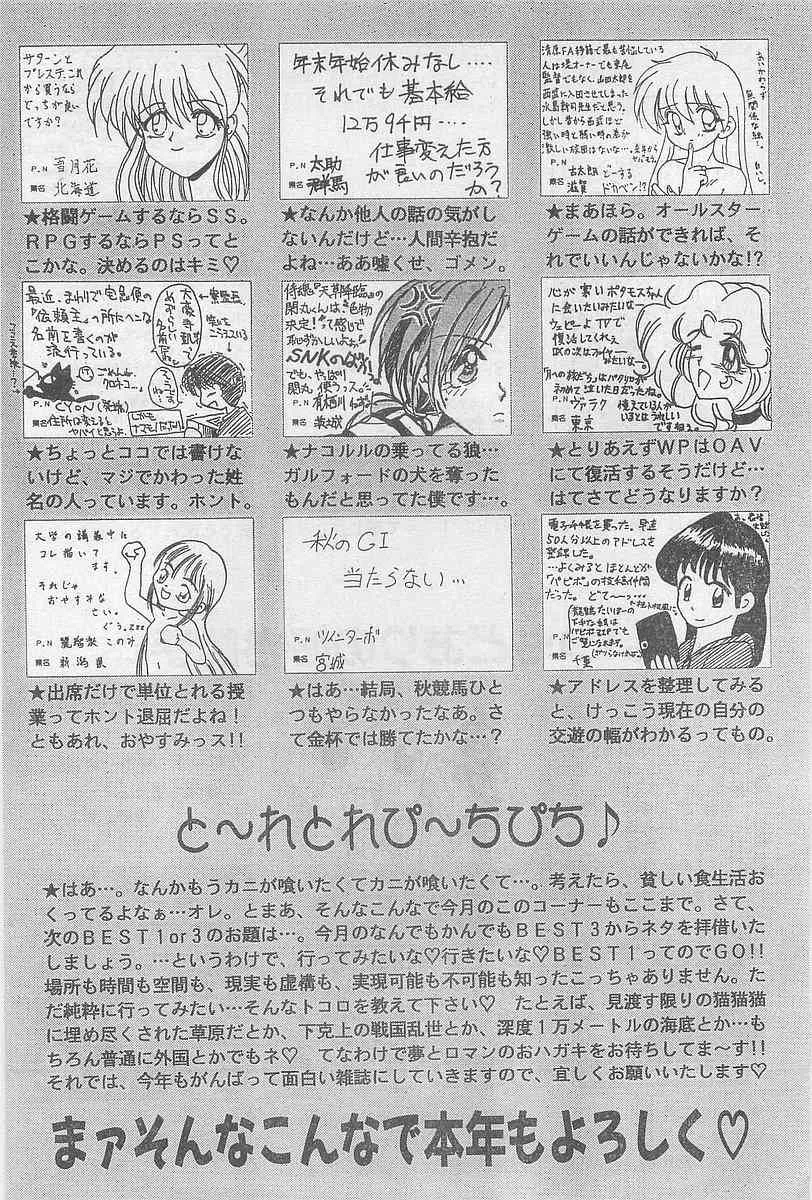 サターンと
プレステ、これ
から買うなら
どっちが良い
ですか?
P.N 雪月花
県名 北海道
★格闘ゲームするならSS。
RPGするならPSってと
こかな。決めるのはキミ♡
年末年始休みなし‥‥
それでも基本給
12万9千円‥‥
仕事変えた方
が良いのだろう
か?
P.N 太助
県名 群馬
★なんか他人の話の気がし
ないんだけど…人間辛抱だ
よね…ああ嘘くせ、ゴメン。
清原FA移籍で最も苦悩している
人は堤オーナーでも東尾
監督でもなく、山田太郎を
西武に入団させてしまった
水島新司先生だと思う。
しかし昔から西武ほど
強い時と弱い時の差が
激しい球団はないな…。
あいかわらず
P.N 古太朗
県名 滋賀
どーする
ドカベン!?
★まあほら。オールスター
ゲームの話ができれば、そ
れでいいんじゃないかな!?
最近、まわりで宅急便の
「依頼主」の所にヘンな
名前を書くのが
流行っている。
P.N CYON
★ちょっとココでは書けな
いけど、マジでかわった姓
名の人っています。ホント。
侍魂『天草降臨』の
閑丸は色物
決定!って感じで
恥ずかしいよぉ!
SNKのばか
でも、やっぱり
閑丸使うっス。
県名 茨城
★ナコルルの乗ってる狼…
ガルフォードの犬を奪った
もんだと思ってた僕です…。
心が寒いポタモスちゃん
に会いたいみたいなー
ウェピーよTVで
復活してくれえ
P.N ヴァラク
県名 東京
★とりあえずWPはOAV
にて復活するそうだけど…
はてさてどうなりますか?
大学の講義中に
コレ描いて
ます。
それじゃ
おやすみな
さい。
ぐぅ。zzz
県名 新潟県
★出席だけで単位とれる授
業ってホント退屈だよね!
ともあれ、おやすみっス!!
秋のGI
当たらない…
P.N ツインターボ
県名 宮城
★はあ…結局、秋競馬ひと
つもやらなかったなあ。さ
て金杯では勝てたかな…?
電子手帳を買った。早速
50人分以上のアドレスを
登録した。
…よくみるとほとんどが
「パピポ」の投稿仲間
だった。どて〜〜っ…
千葉
★アドレスを整理してみる
と、けっこう現在の自分の
交遊の幅がわかるってもの。
と〜れとれぴ〜ちぴち♪
★はあ…。なんかもうカニが喰いたくてカニが喰いたくて…。考えたら、貧しい食生活お
くってるよなぁ…オレ。とまあ、そんなこんなで今月のこのコーナーもここまで。さて、
次のBEST1or3のお題は…。今月のなんでもかんでもBEST3からネタを拝借いた
しましょう。…というわけで、行ってみたいな♡行きたいな♡BEST1ってのでGO!!
場所も時間も空間も、現実も虚構も、実現可能も不可能も知ったこっちゃありません。た
だ純粋に行ってみたい…そんなトコロを教えて下さい♡ たとえば、見渡す限りの猫猫猫
に埋め尽くされた草原だとか、下克上の戦国乱世とか、深度1万メートルの海底とか…も
ちろん普通に外国とかでもネ♡ てなわけで夢とロマンのおハガキをお待ちしてま〜す!!
それでは、今年もがんばって面白い雑誌にしていきますので、宜しくお願いいたします♡
まァそんなこんなで本年もよろしく♡